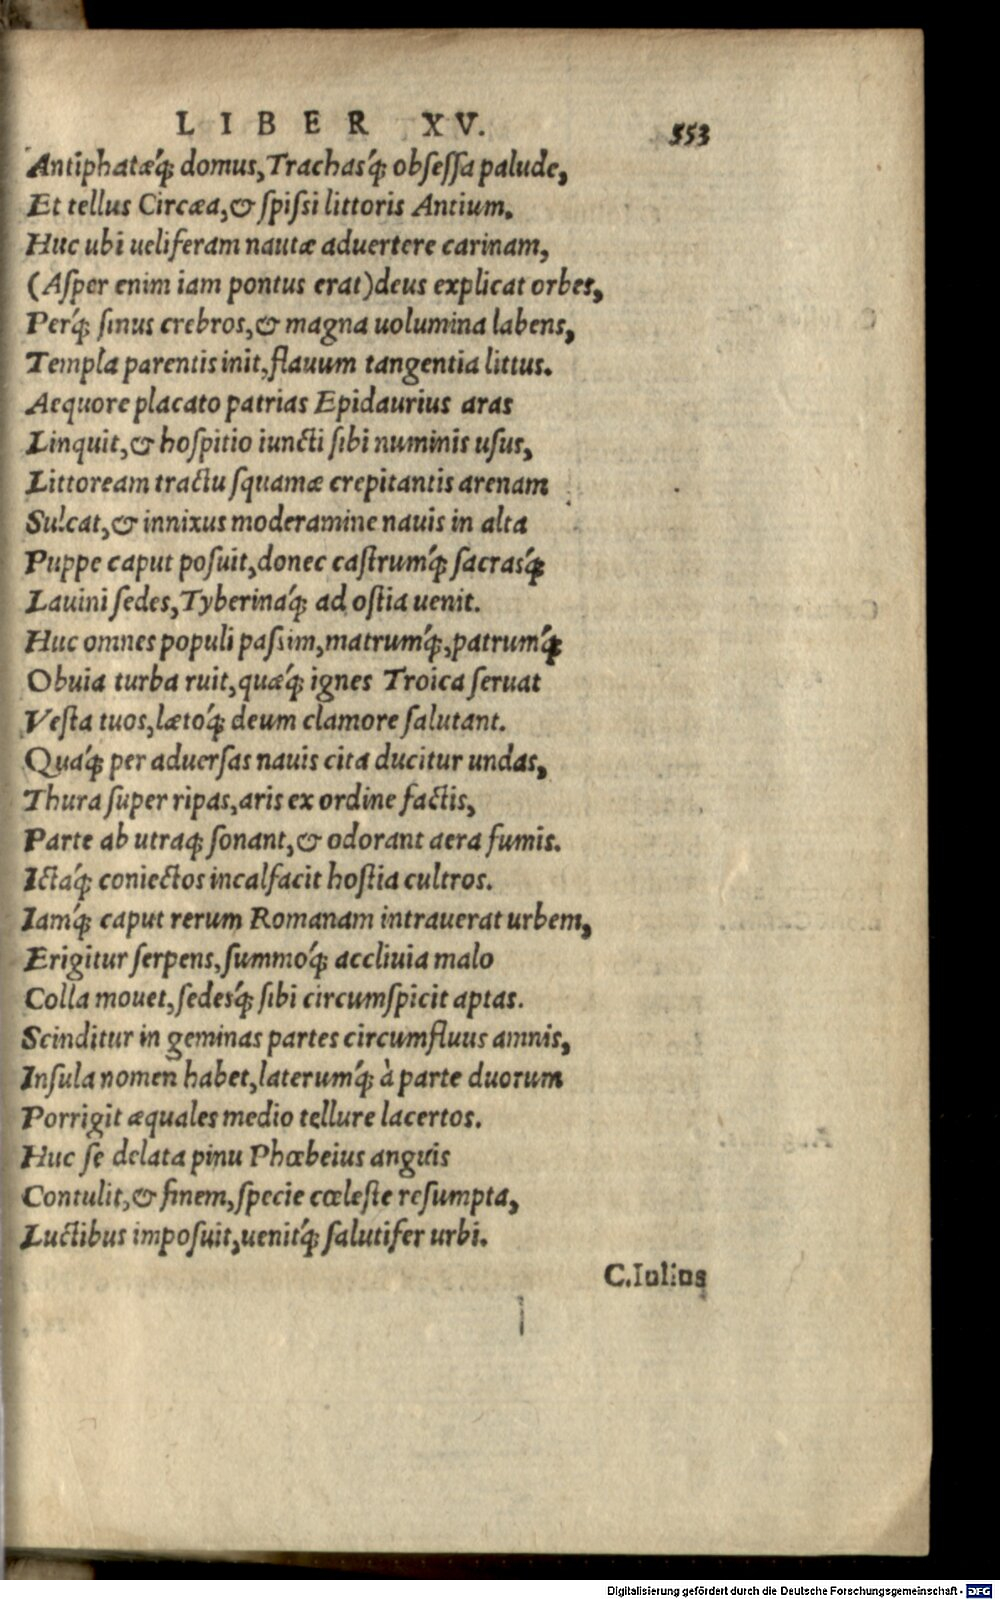 LIBER XV. 553
Antiphatæq́; domus, Trachasq́; obſeſſa palude,
Et tellus Circæa, & ſpiſsi littoris Antium.
Huc ubi ueliferam nautæ aduertere carinam,
(Aſper enim iam pontus erat) deus explicat orbes,
Perq́; ſinus crebros, & magna uolumina labens,
Templa parentis init, flauum tangentia littus.
Aequore placato patrias Epidaurius aras
Linquit, & hoſpitio iuncti ſibi numinis uſus,
Littoream tractu ſquamæ crepitantis arenam
Sulcat, & innixus moderamine nauis in alta
Puppe caput poſuit, donec caſtrumq́; ſacrasq́;
Lauini ſedes, Tyberinaq́; ad oſtia uenit.
Huc omnes populi paſsim, matrumq́;, patrumq́;
Obuia turba ruit, quæq́; ignes Troica ſeruat
Veſta tuos, lætoq́; deum clamore ſalutant.
Quaq́; per aduerſas nauis cita ducitur undas,
Thura ſuper ripas, aris ex ordine factis,
Parte ab utraq; ſonant, & odorant aera fumis.
Ictaq́; coniectos incalfacit hoſtia cultros.
Iamq́; caput rerum Romanam intrauerat urbem,
Erigitur ſerpens, ſummoq́; accliuia malo
Colla mouet, ſedesq́; ſibi circumſpicit aptas.
Scinditur in geminas partes circumfluus amnis,
Inſula nomen habet, laterumq́; à parte duorum
Porrigit æquales medio tellure lacertos.
Huc ſe delata pinu Phœbeius anguis
Contulit, & finem, ſpecie cœleſte reſumpta,
Luctibus impoſuit, uenitq́; ſalutifer urbi.
C. Iulius
Digitalisierung gefördert durch die Deutsche Forschungsgemeinschaft - DFG